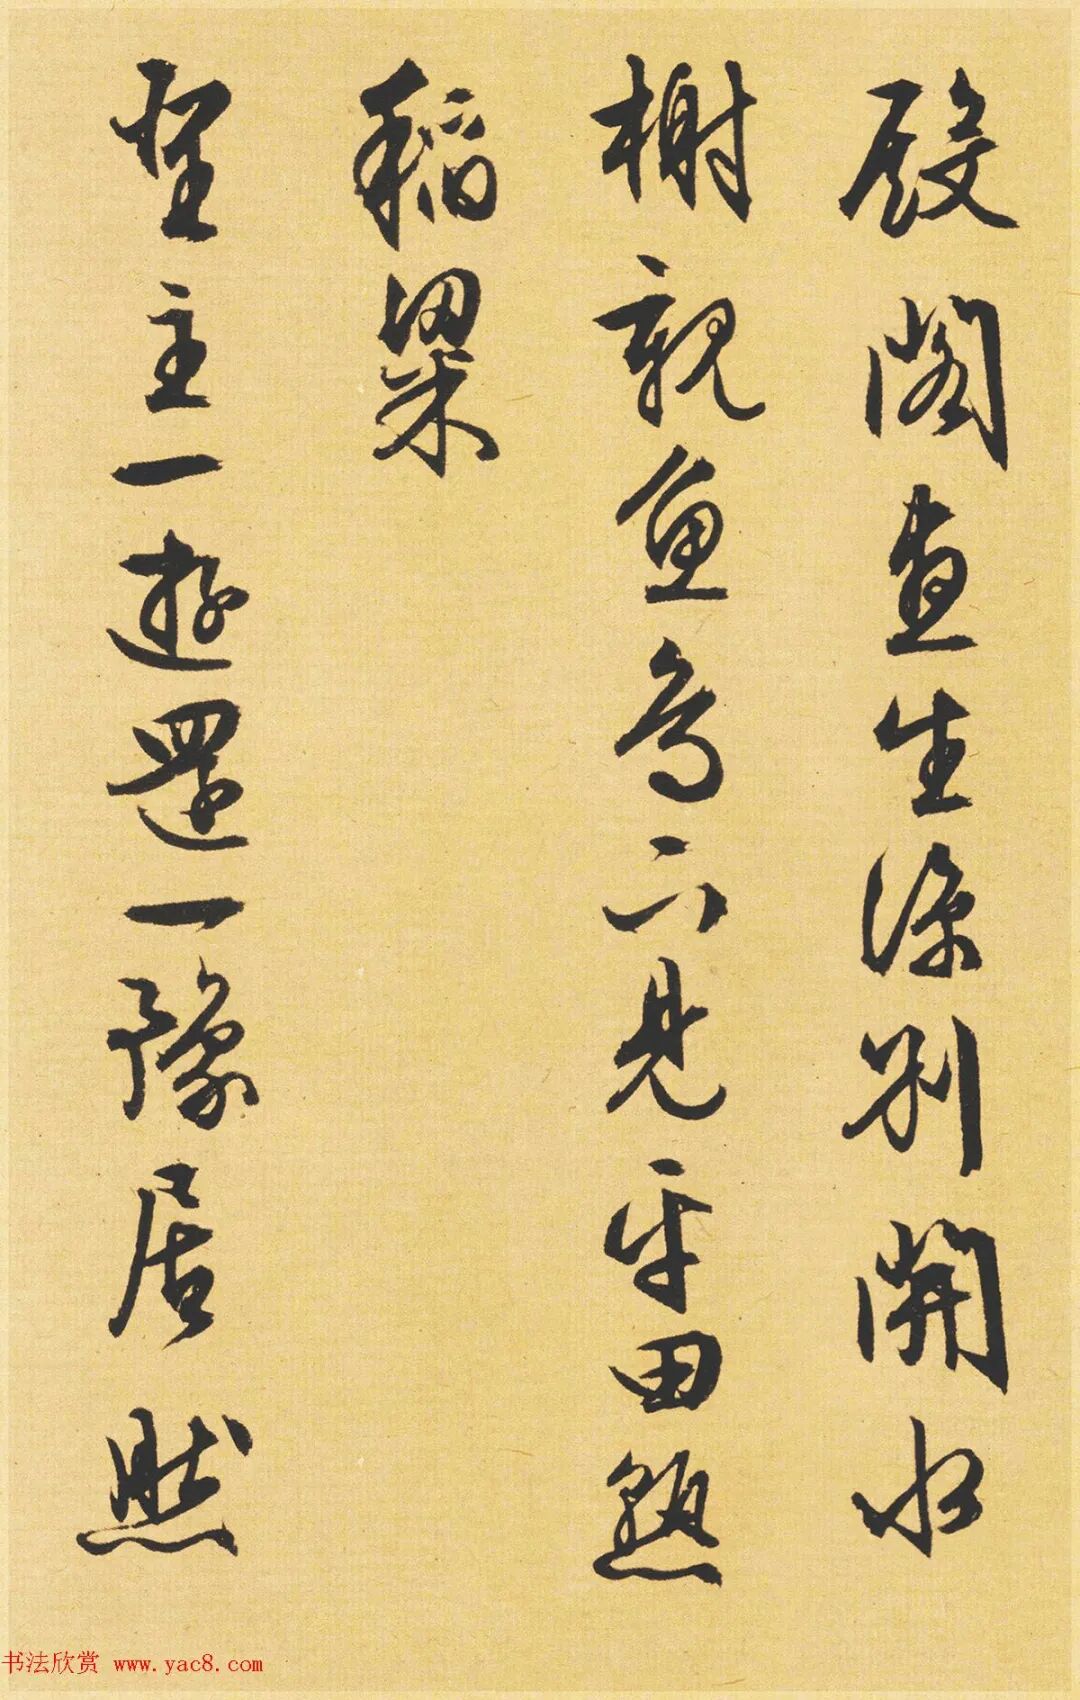 殿閣直生涼别開水
榭親魚鳥下見平田熟
稻粱
聖主一遊還一豫居然
书法欣赏 www.yac8.com